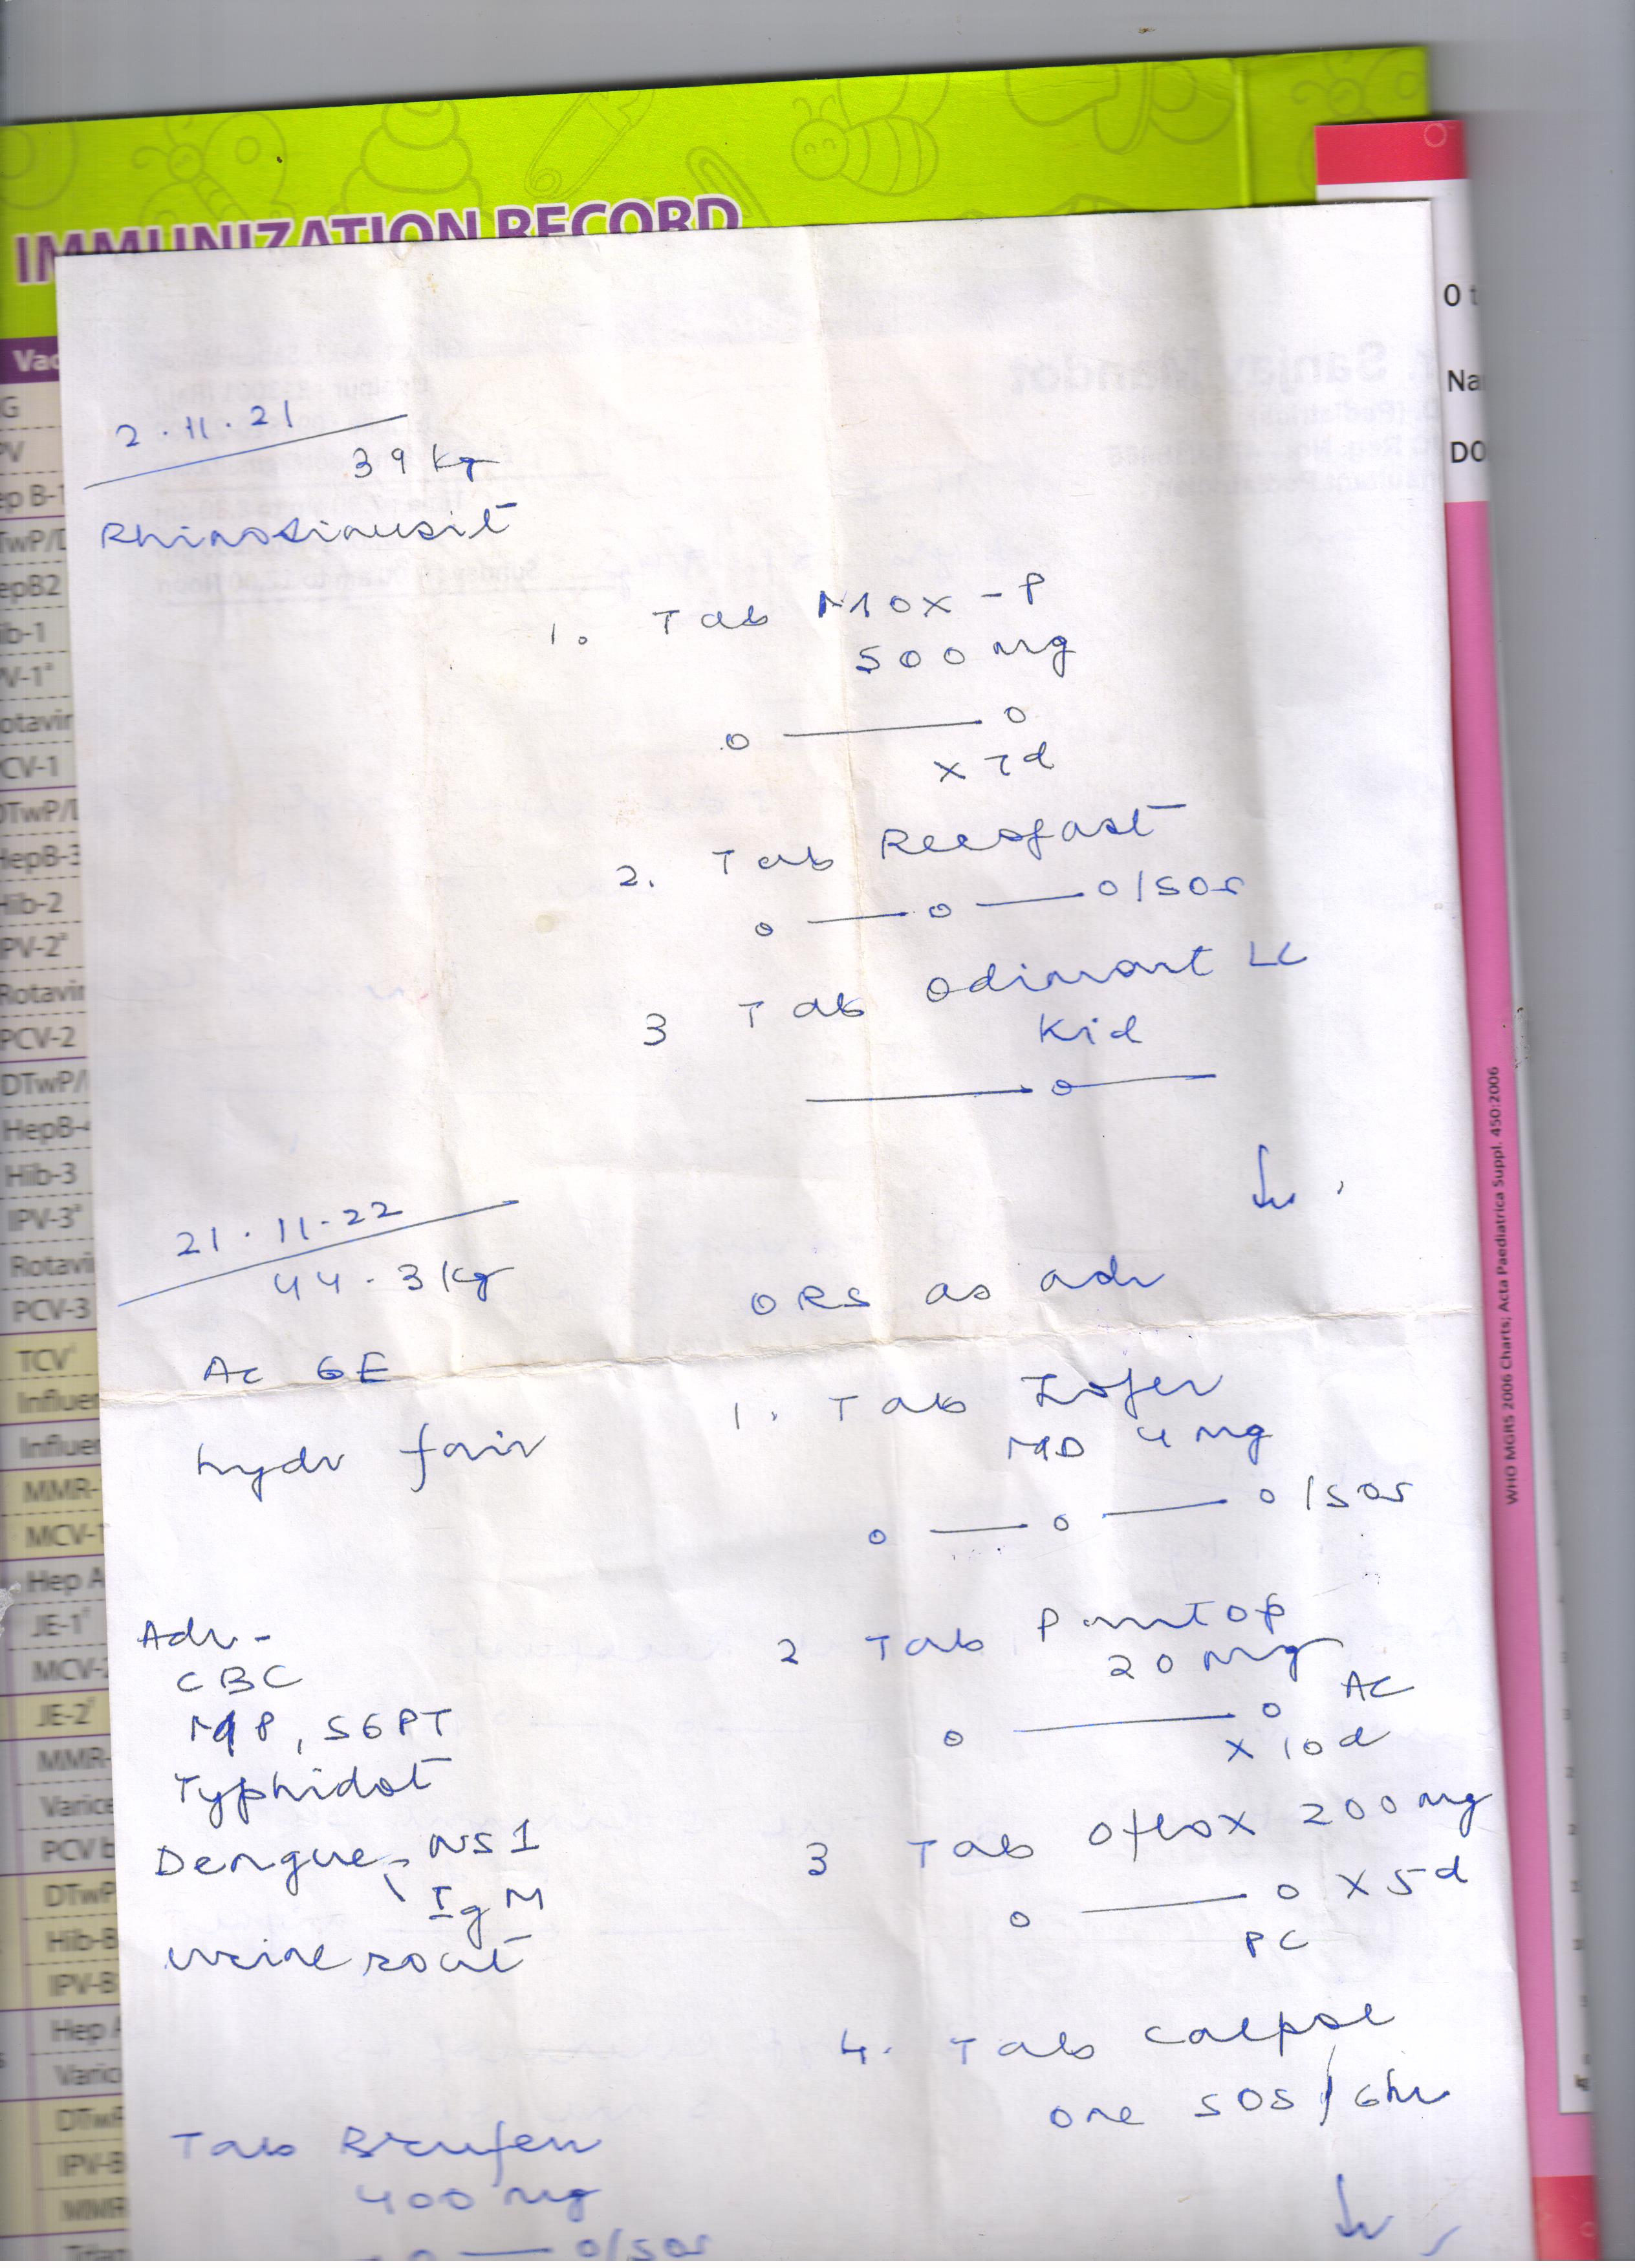 IMMUNIZATION RECORD
Vac
G
PV
ep B-1
TwP/D
epB2
ib-1
PV-1
otavir
CV-1
DTwP/D
HepB-3
Hib-2
IPV-2
Rotavir
PCV-2
DTwP/
HepB-4
Hib-3
IPV-3
Rotavi
PCV-3
TCV
Influen
Influen
MMR-
MCV-1
Hep A
JE-1
MCV-2
JE-2
MMR-
Varice
PCV b
DTwP
Hib-B
IPV-B
Hep A
Varic
DTwP
IPV-B
MMR
O t
Na
DO
WHO MGRS 2006 Charts; Acta Paediatrica Suppl. 450:2006
2.11.21
39 kg
Rhinosinusit
1. Tab MOX-P
500 mg
o — o
x 7d
2. Tab Reesfast
o — o — o/SOS
3 Tab Odimont LC
Kid
— o —
21.11.22
44.3 kg
ORS as adv
Ac GE
hydr fair
1. Tab Zofer
MD 4 mg
o — o — o/SOS
Adv-
CBC
MP, SGPT
Typhidot
Dengue NS1
IgM
urine rout
2 Tab Pantop
20 mg
o — o AC
x 10d
3 Tab Oflox 200 mg
o — o x 5d
PC
4. Tab Calpol
one SOS/6hr
Tab Brufen
400 mg
o — o/SOS